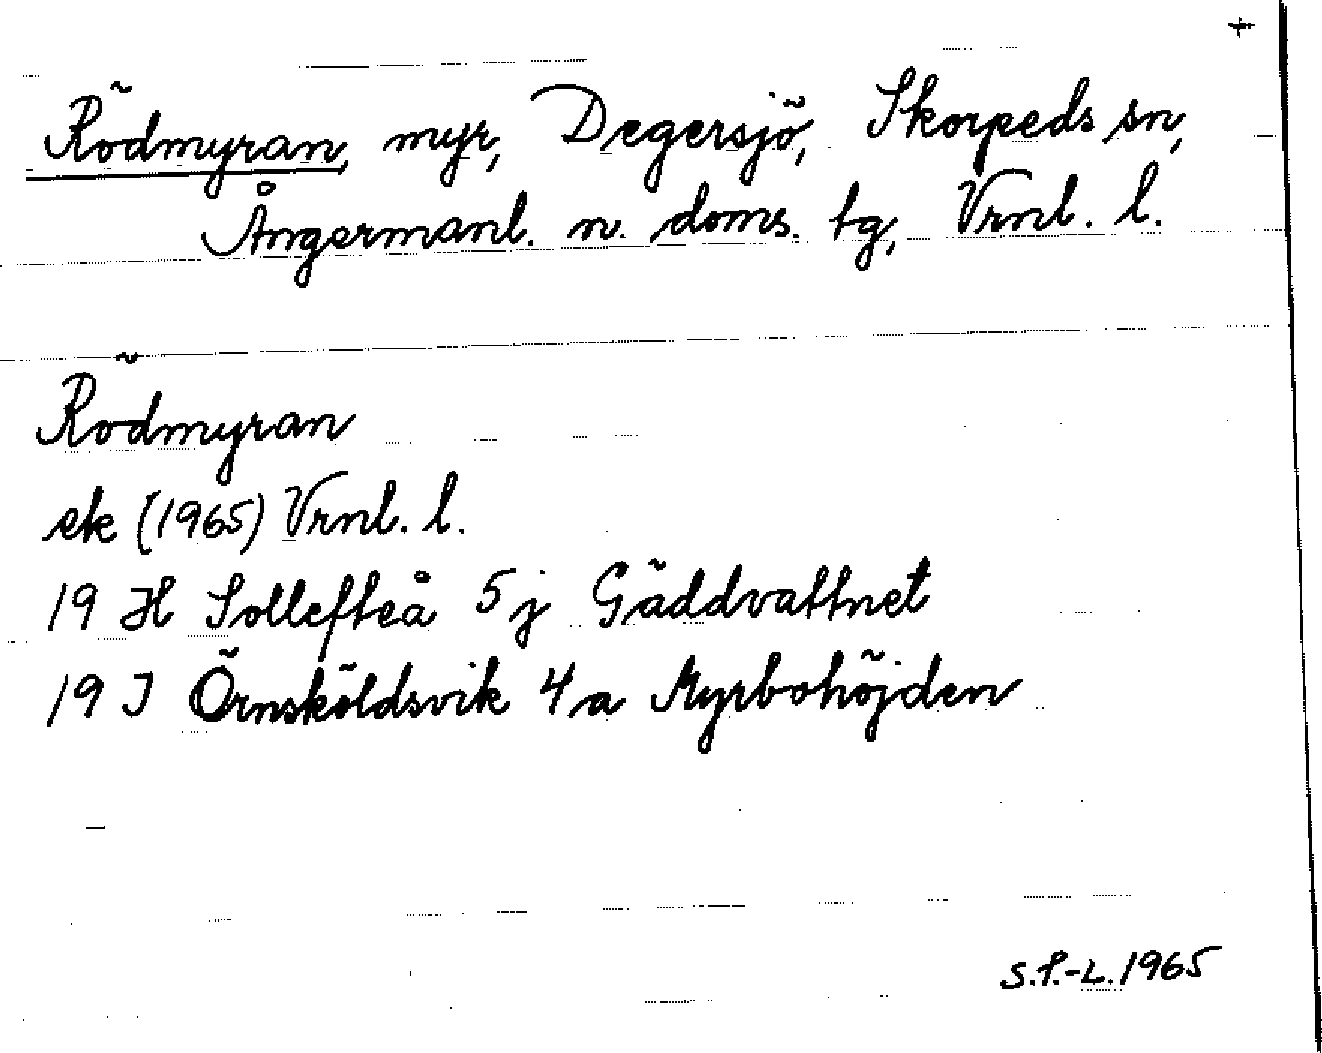 Rödmyran, myr, Degersjö, Skorpeds sn,
Ångermanl. n. doms. tg, Vrnl. l.
Rödmyran
ek (1965) Vrnl. l.
19 H Sollefteå 5 j Gäddvattnet
19 J Örnsköldsvik 4 a Myrbohöjden
S.P.-L. 1965